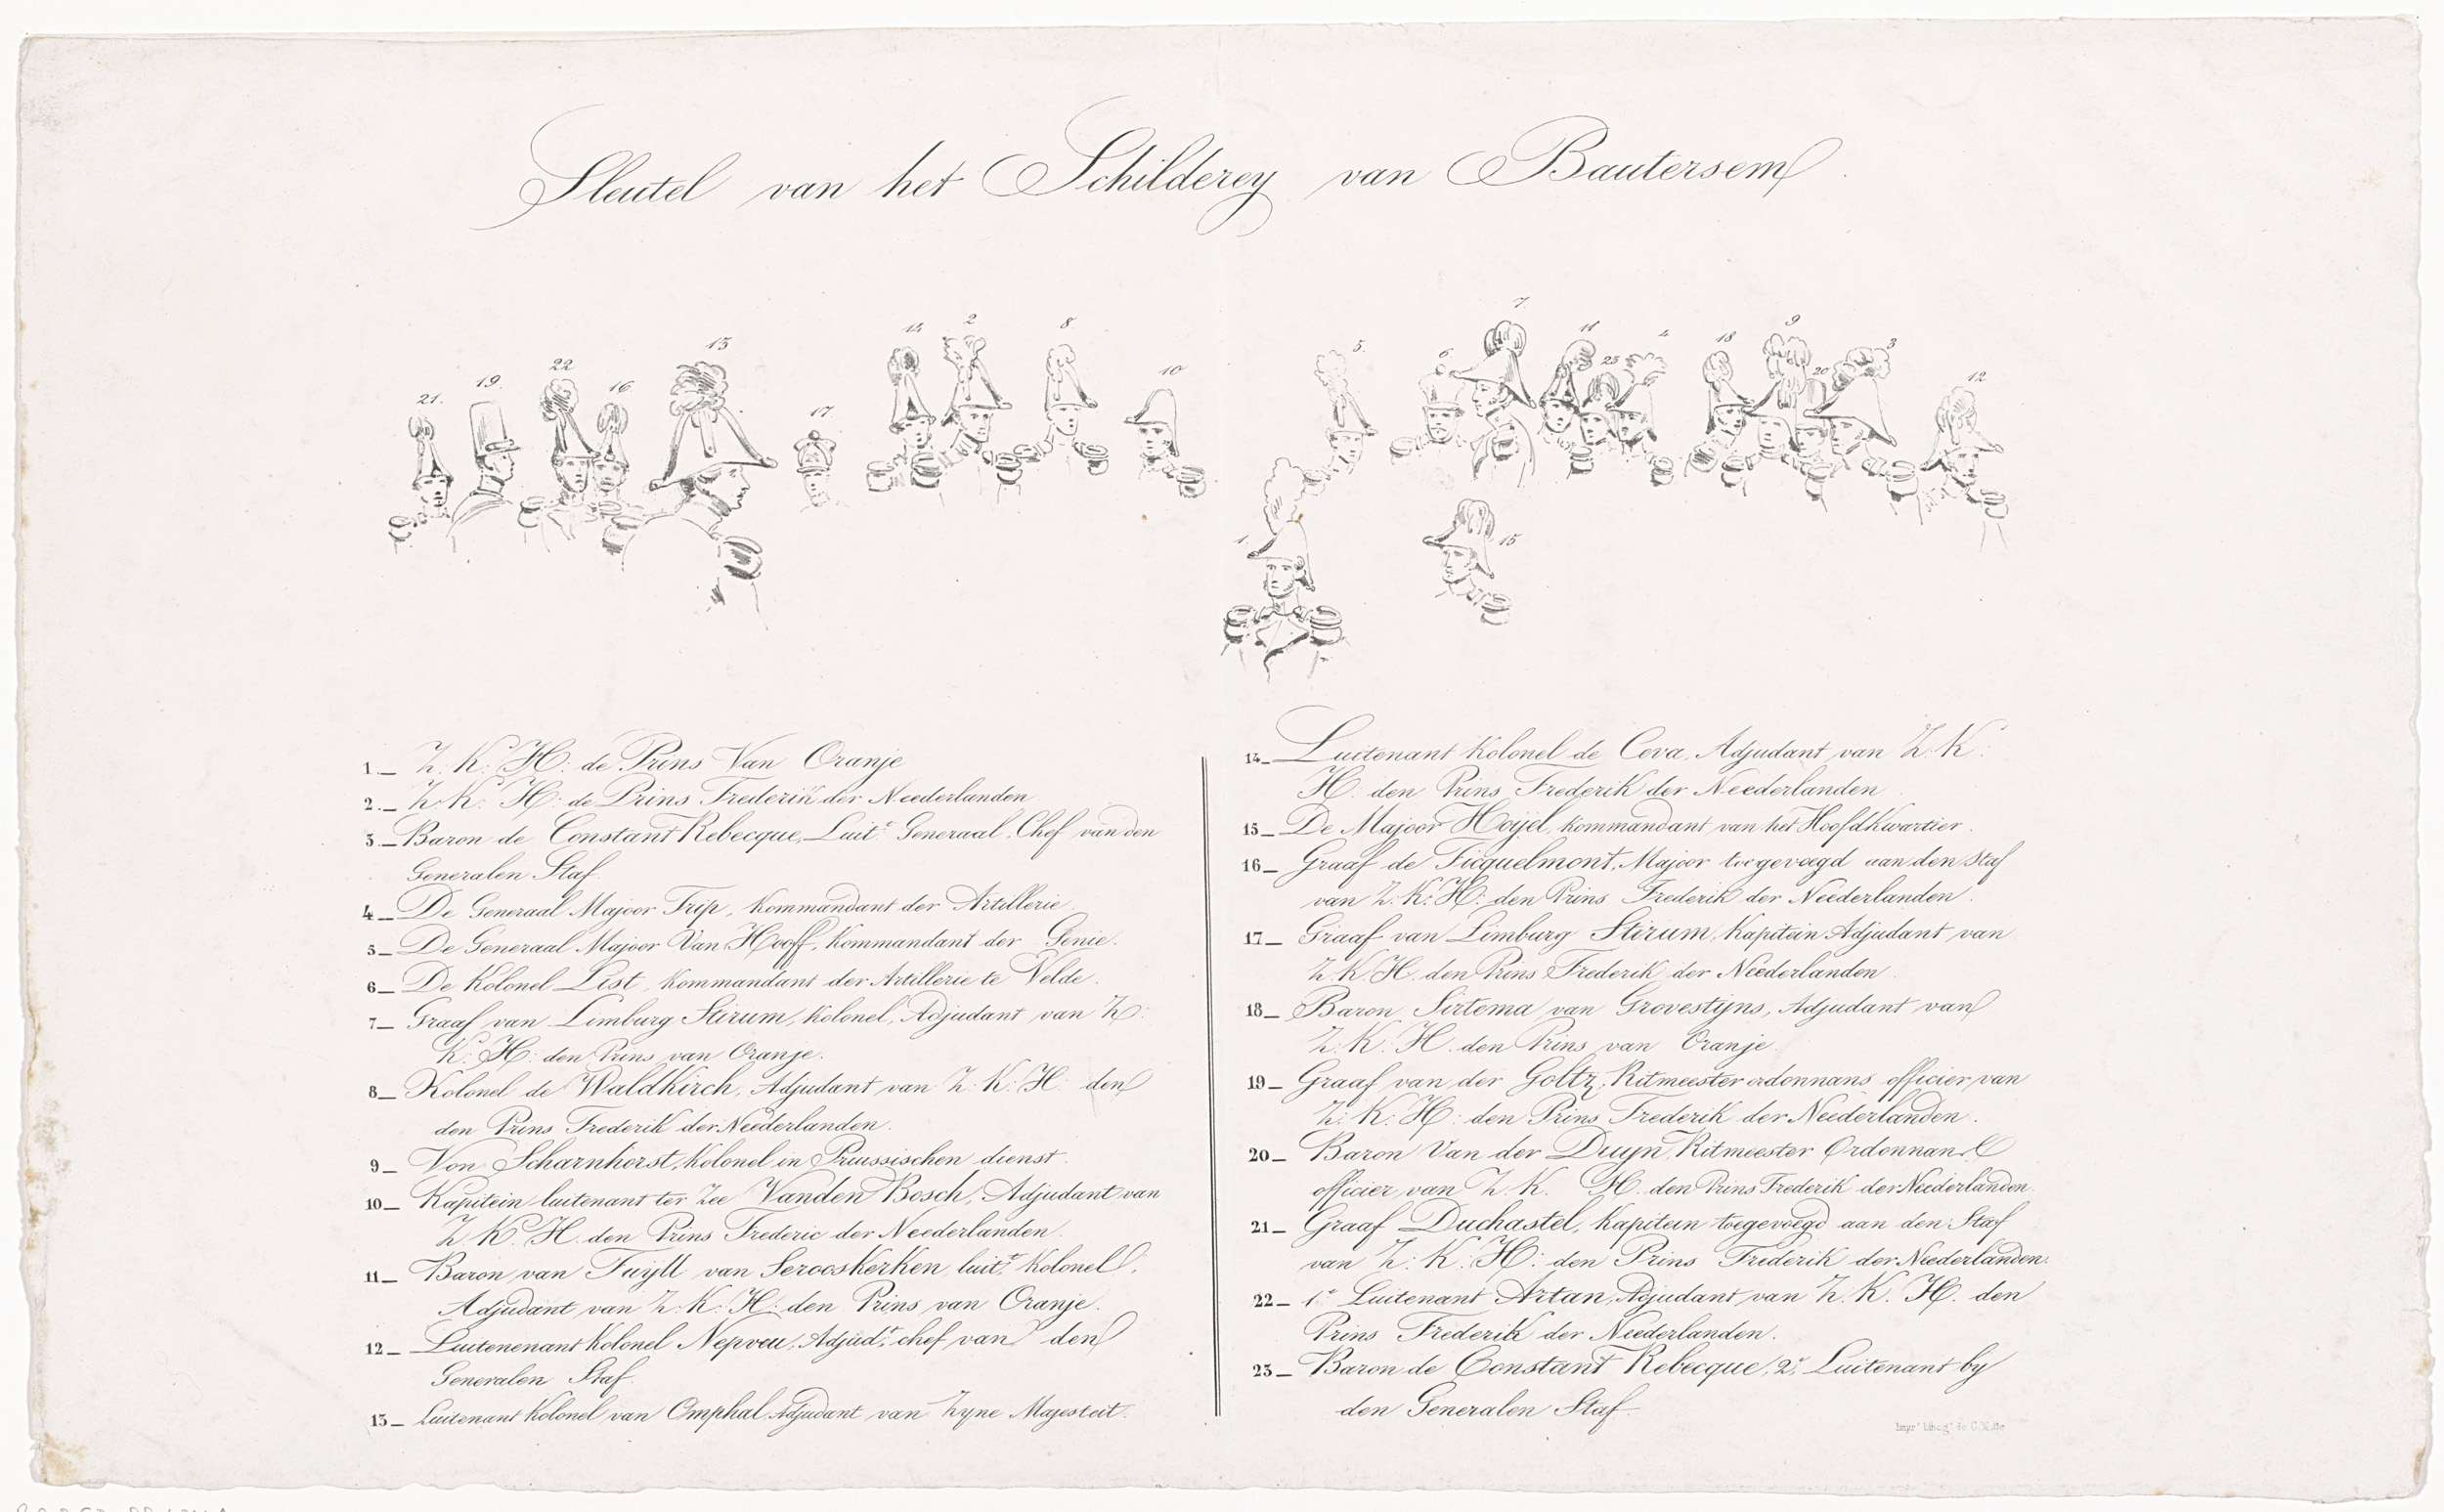 Sleutel van het Schilderey van Bautersem
7
2
8
9
14
11
4
18
3
5.
13
6
25
22
10
20
12
19.
16
21.
17
1.
15
1_ Z. K: H: de Prins Van Oranje
2._ Z. K: H: de Prins Frederik der Neederlanden
3._ Baron de Constant Rebecque, Luitt Generaal, Chef van den
Generalen Staf.
4_ De Generaal Majoor Trip, Kommandant der Artillerie.
5_ De Generaal Majoor Van Hooff, Kommandant der Genie.
6_ De Kolonel List, Kommandant der Artillerie te Velde.
7_ Graaf van Limburg Stirum, Kolonel, Adjudant van Z:
K: H: den Prins van Oranje.
8_ Kolonel de Waldkirch, Adjudant van Z: K: H: den
den Prins Frederik der Neederlanden.
9_ Von Scharnhorst, Kolonel in Pruissischen dienst.
10_ Kapitein luitenant ter Zee Vanden Bosch, Adjudant van
Z. K: H. den Prins Frederic der Neederlanden.
11_ Baron van Tuyll van Serooskerken, luitt Kolonel,
Adjudant van Z: K: H: den Prins van Oranje.
12_ Luitenenant Kolonel Nepveu, Adjudt chef van den
Generalen Staf.
13_ Luitenant Kolonel van Omphal, Adjudant van Zyne Majesteit.
14_ Luitenant Kolonel de Ceva, Adjudant van Z. K:
H. den Prins Frederik der Neederlanden
15_ De Majoor Hoijel, Kommandant van het Hoofdkwartier.
16_ Graaf de Ficquelmont, Majoor toegevoegd aan den staf
van Z. K: H: den Prins Frederik der Neederlanden.
17_ Graaf van Limburg Stirum, Kapitein Adjudant van
Z. K. H. den Prins Frederik der Neederlanden.
18_ Baron Sirtema van Grovestijns, Adjudant van
Z. K: H. den Prins van Oranje.
19_ Graaf van der Goltz, Ritmeester ordonnans officier van
Z: K: H: den Prins Frederik der Neederlanden.
20_ Baron Van der Duyn, Ritmeester Ordonnans
officier van Z. K. H. den Prins Frederik der Neederlanden.
21_ Graaf Duchastel, Kapitein toegevoegd aan den Staf
van Z: K: H: den Prins Frederik der Neederlanden.
22_ 1e Luitenant Artan, Adjudant van Z. K. H. den
Prins Frederik der Neederlanden.
23_ Baron de Constant Rebecque, 2e Luitenant by
den Generalen Staf.